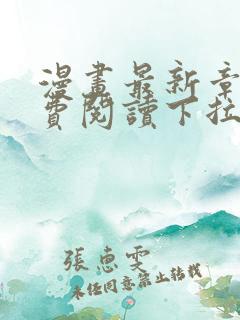 漫畫最新章
費閱讀下拉
張惠雯
未經同意禁止轉載